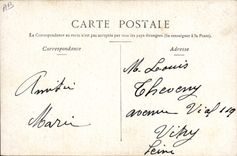 CARTE POSTALE
La Correspondance au recto n'est pas acceptée par tous les pays étrangers (Se renseigner à la Poste).
Correspondance
Adresse
Amitié
Marie
M. Louis
Theveny
avenue
Vitry
Seine